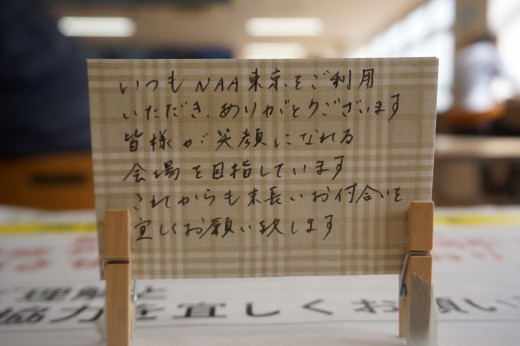 いつもNAA東京をご利用
いただき、ありがとうございます
皆様が笑顔になれる
会場を目指しています
これからも末長いお付合いを
宜しくお願い致します
理解と
協力を宜しくお願い